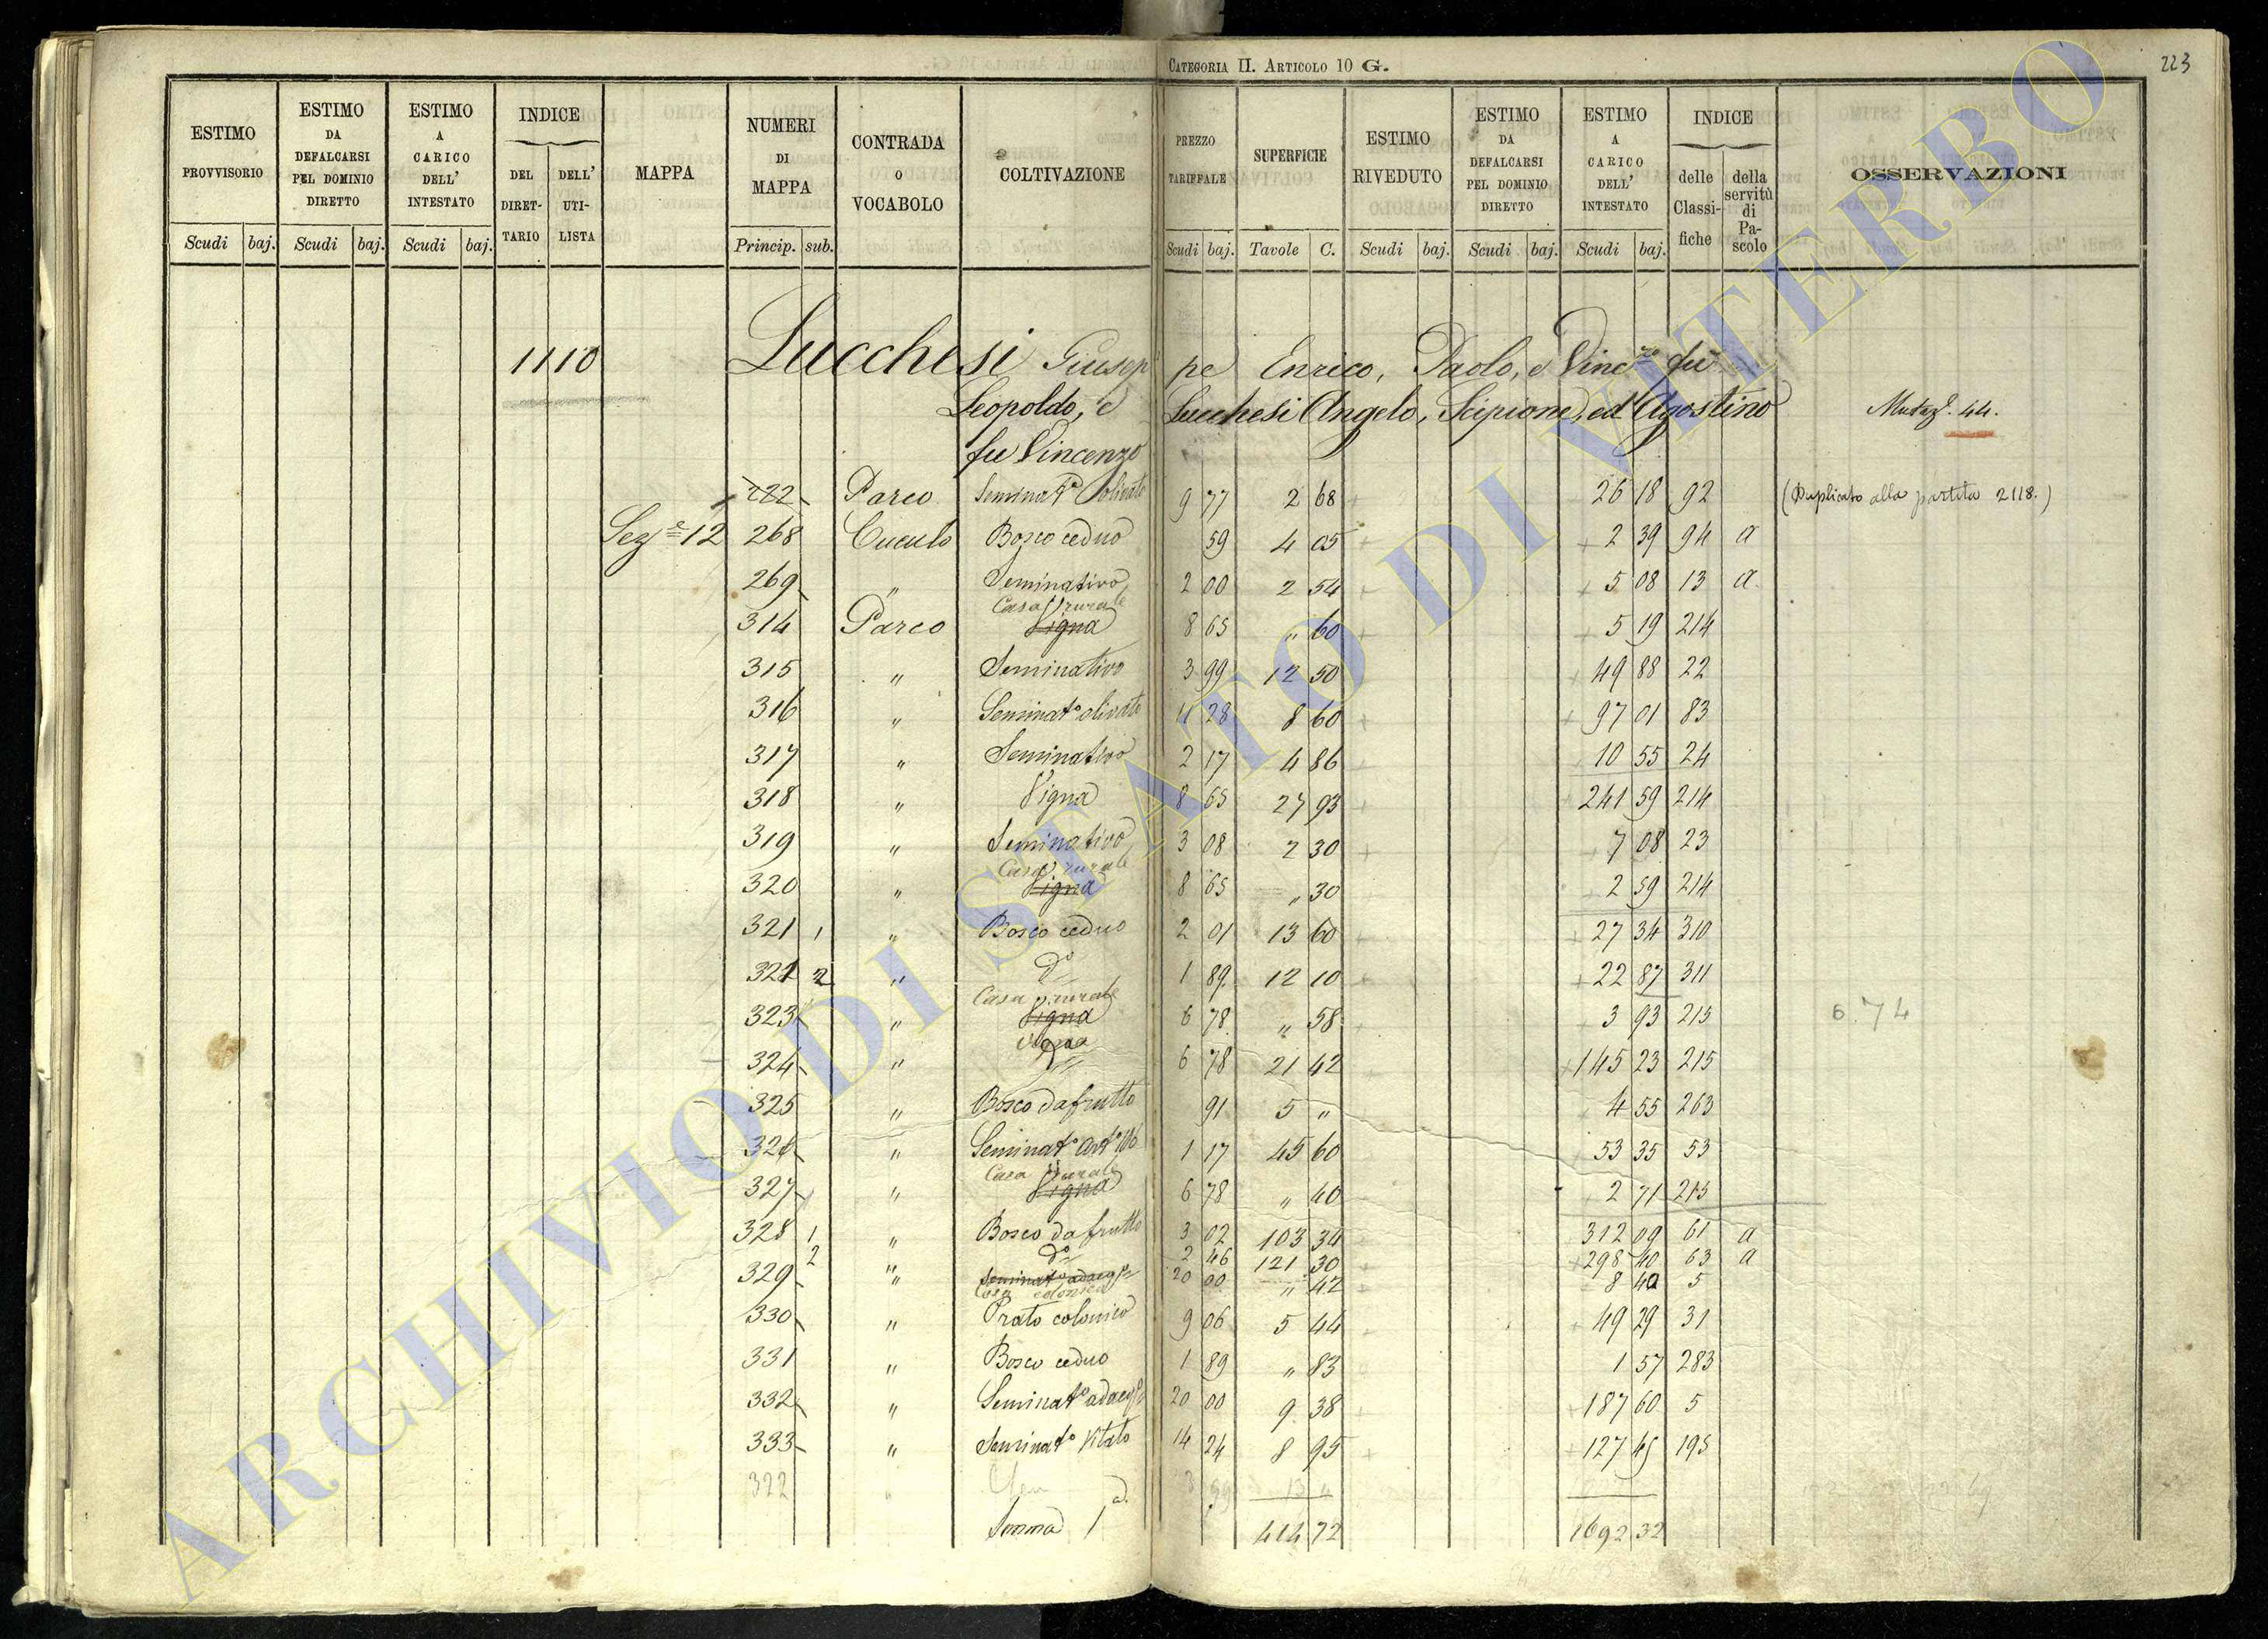 CATEGORIA II. ARTICOLO 10 G.
223
ESTIMO PROVVISORIO Scudi baj.
ESTIMO DA DEFALCARSI PEL DOMINIO DIRETTO Scudi baj.
ESTIMO A CARICO DELL' INTESTATO Scudi baj.
INDICE DEL DIRETTARIO DELL' UTILISTA
MAPPA
NUMERI DI MAPPA Princip. sub.
CONTRADA O VOCABOLO
COLTIVAZIONE
PREZZO TARIFFALE Scudi baj.
SUPERFICIE Tavole C.
ESTIMO RIVEDUTO Scudi baj.
ESTIMO DA DEFALCARSI PEL DOMINIO DIRETTO Scudi baj.
ESTIMO A CARICO DELL' INTESTATO Scudi baj.
INDICE delle Classifiche della servitù di Pascolo
OSSERVAZIONI
1110 Lucchesi Giuseppe Enrico, Paolo, e Vinc.zo fu
Leopoldo, e Lucchesi Angelo, Scipione, ed Agostino Mutaz.e 44.
fu Vincenzo
222 Parco Seminat.o olivato 9 77 2 68 26 18 92 (Duplicato alla partita 2118.)
Sez.e 12 268 Cuculo Bosco ceduo 59 4 05 2 39 94 a
269 " Seminativo 2 00 2 54 5 08 13 a
Casa rurale
314 Parco Vigna 8 65 " 60 5 19 214
315 " Seminativo 3 99 12 50 49 88 22
316 " Seminat.o olivato 11 28 8 60 97 01 83
317 " Seminativo 2 17 4 86 10 55 24
318 " Vigna 8 65 27 93 241 59 214
319 " Seminativo 3 08 2 30 7 08 23
Casa rurale
320 " Vigna 8 65 " 30 2 59 214
321 1 " Bosco ceduo 2 01 13 60 27 34 310
321 2 " D.o 1 89 12 10 22 87 311
Casa rurale
323 " Vigna 6 78 " 58 3 93 215 6.74
Vigna
324 " D.o 6 78 21 42 145 23 215
325 " Bosco da frutto 91 5 " 4 55 263
326 " Seminat.o 1 17 45 60 53 35 53
Casa rurale
327 " Vigna 6 78 " 40 2 71 215
328 1 " Bosco da frutto 3 02 103 34 312 09 61 a
2 " D.o 2 46 121 30 298 40 63 a
329 " Seminat.o adacq.e 20 00 " 42 8 40 5
Casa colonica
330 " Prato colonico 9 06 5 44 49 29 31
331 " Bosco ceduo 1 89 " 83 1 57 283
332 " Seminat.o adacq.e 20 00 9 38 187 60 5
333 " Seminat.o Vitato 14 24 8 95 127 45 195
322 "
Somma 1.a 414 72 1692 32
ARCHIVIO DI STATO DI VITERBO